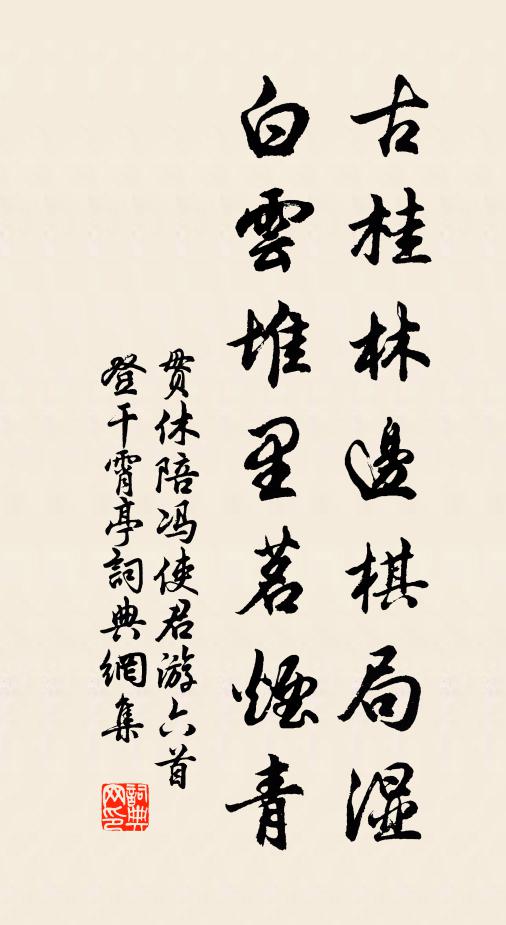 古桂林邊棋局湿
白雲堆里茗煙青
貫休陪冯使君游六首
登干霄亭詞典網集
詞典网印